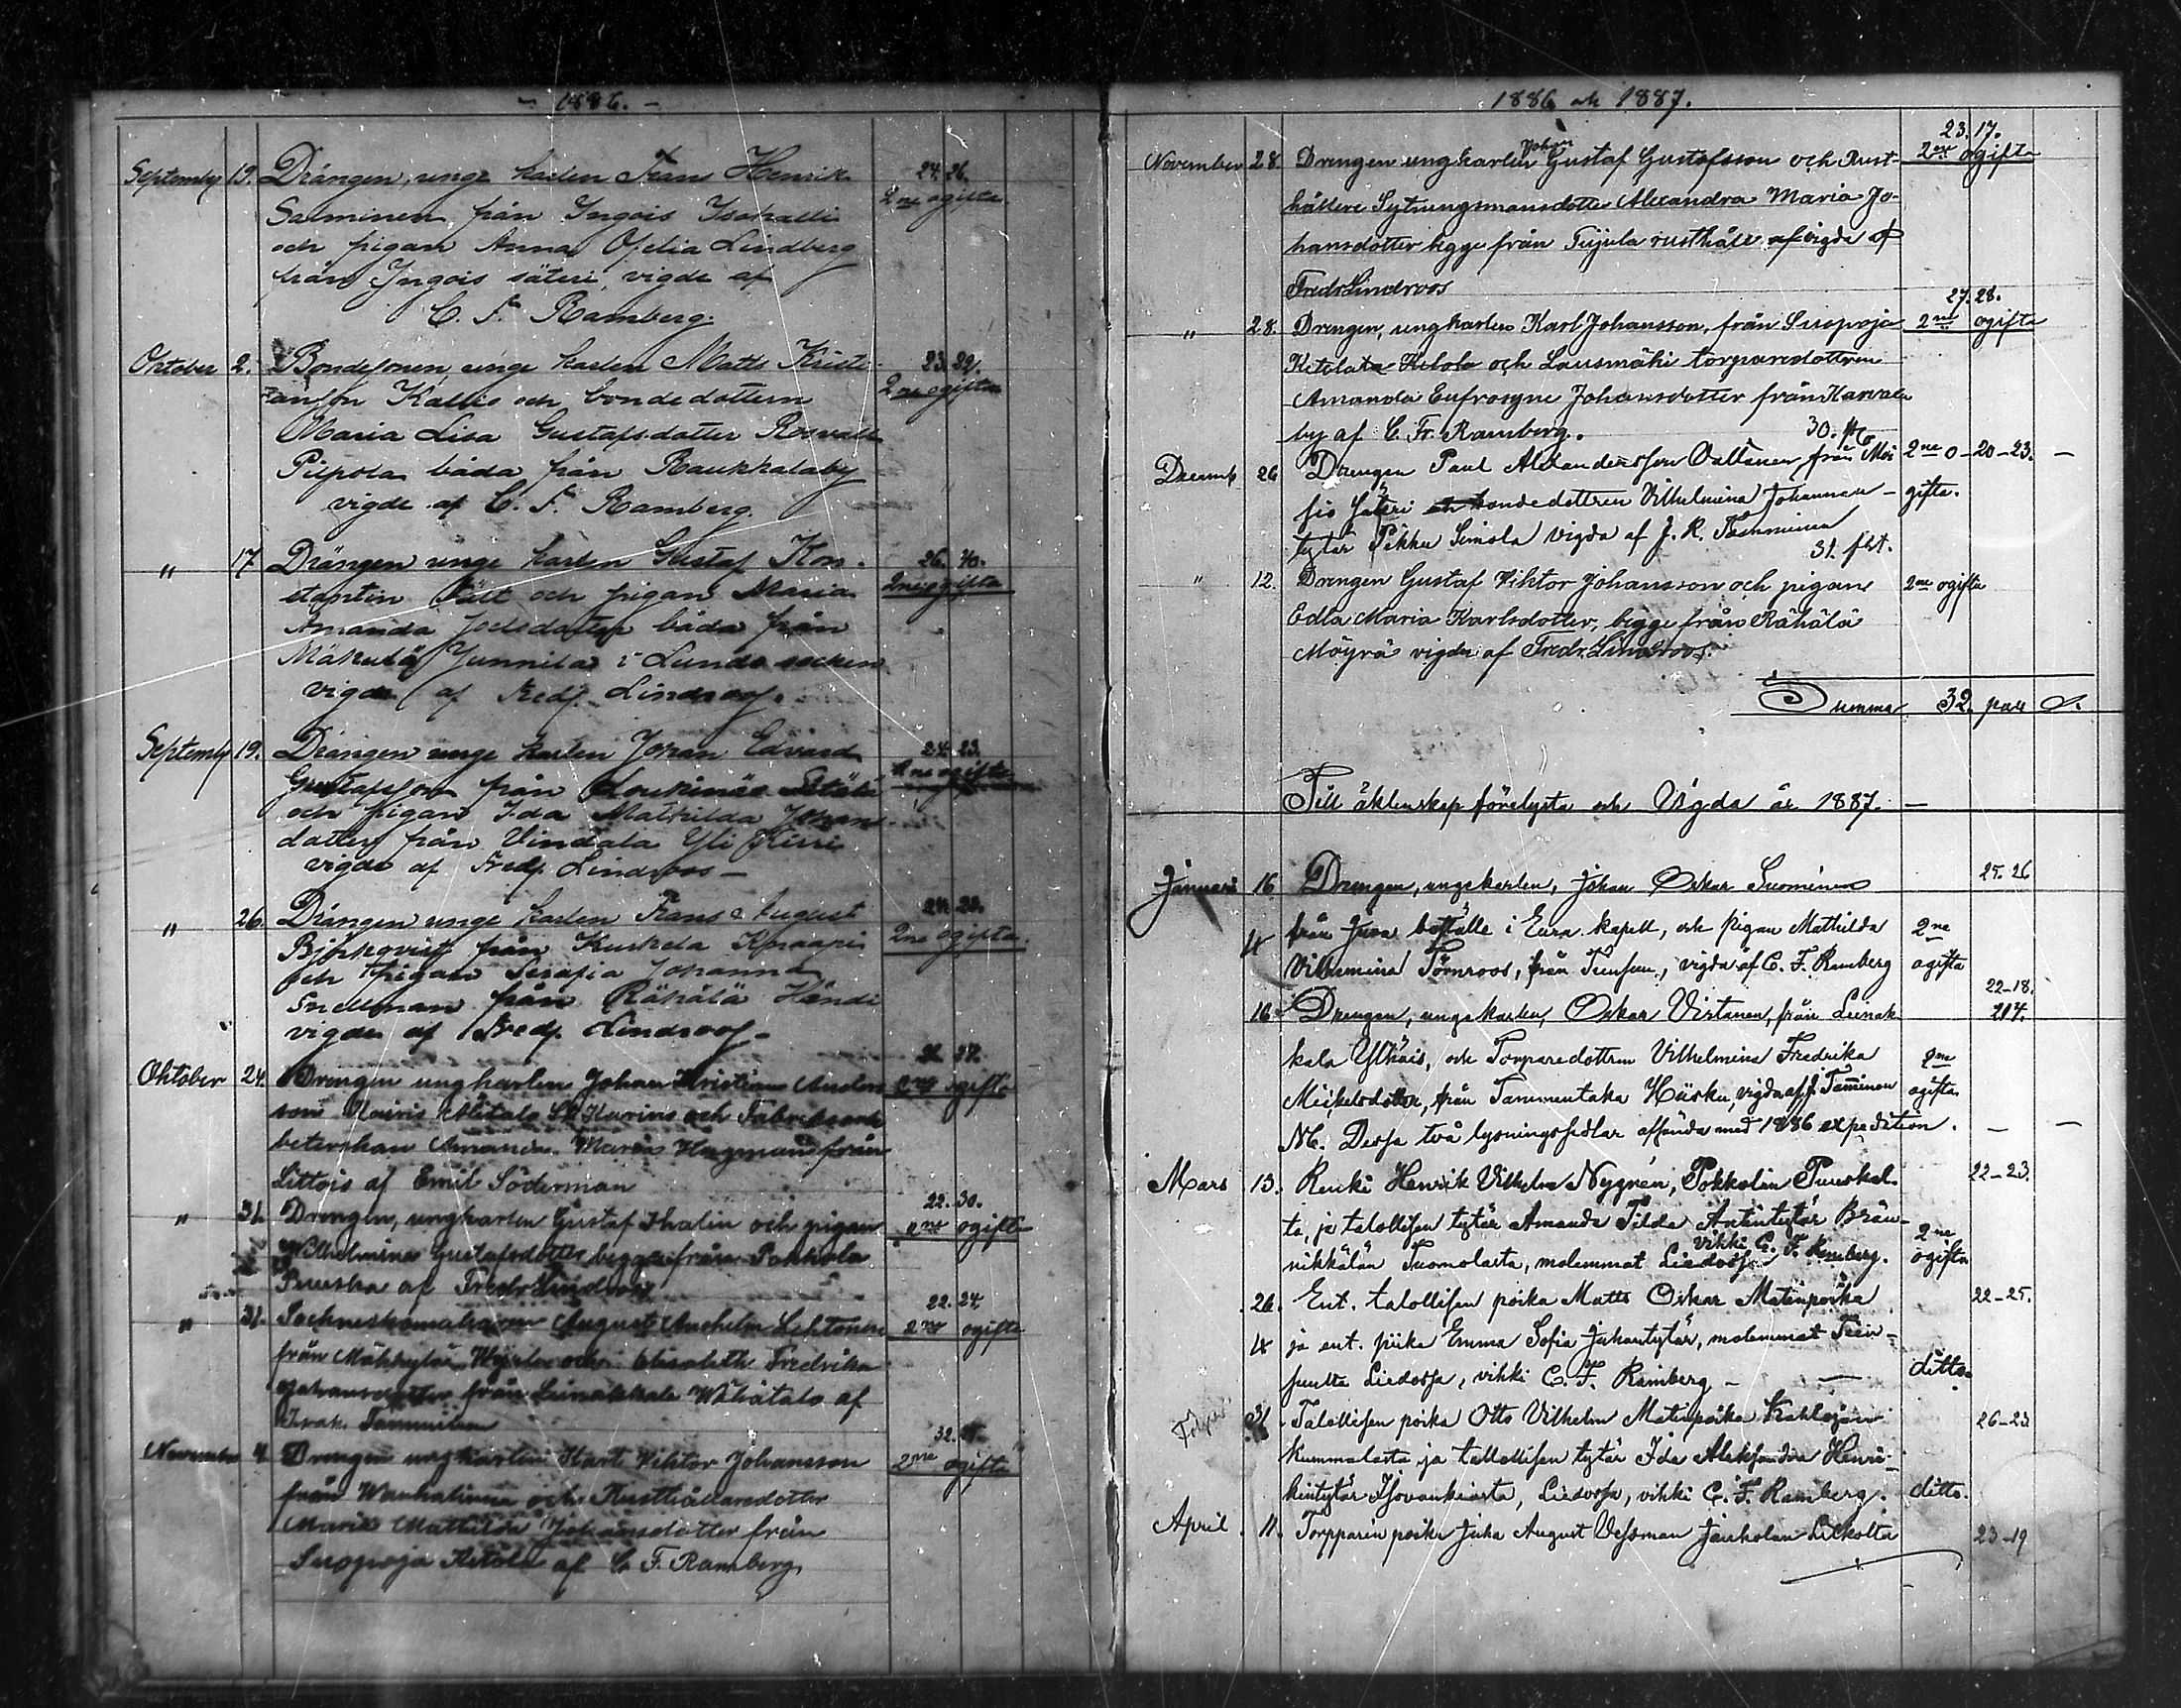 1886.
September 19. Drängen, unge karlen Frans Henrik 24. 26.
Salminen från Ingois Isokalli 2ne ogifta
och pigan Anna Ofelia Lindberg
från Ingois säteri, vigde af
C. F. Ramberg.
Oktober 2. Bondesonen unge karlen Matts Kristi- 23. 22.
ansson Kallis och bondedottern 2ne ogifta
Maria Lisa Gustafsdotter Rosvall
Piipola båda från Raukkalaby
vigde af C. F. Ramberg.
" 17 Drängen unge karlen Gustaf Kon- 26. 40.
stantin Fält och pigan Maria 2ne ogifta
Amanda Joelsdotter båda från
Mäkulä Junnila i Lundo socken
vigde af Fredr. Lindroos.
September 19. Drängen unge karlen Johan Edvard 24. 23.
Gustafsson från Loukinäs 2ne ogifta
och pigan Ida Mathilda Johans
dotter från Vindala Yli Kirri
vigde af Fredr. Lindroos —
" 26. Drängen unge karlen Frans August
Björkqvist från Kuskela Knaapi 2ne ogifta.
och pigan Serafia Johanna
från Rähälä Händi
vigde af Fredr. Lindroos -
Oktober 24. Drengen ungkarlen Johan Kristian Anders
son Nairis Alitalo St Karins och Fabriksar 2ne ogifta
beterskan Amanda Maria Hagman från
Littois af Emil Söderman
" 31. Drengen, ungkarlen Gustaf Thalin och pigan 22. 30.
Wilhelmina Gustafsdotter begge från Pokkola 2ne ogifta
Puuska af Fredr Lindroos
" 31. Sockneskomakaren August Anshelm Lehtonen 22. 24.
från och Elisabeth Fredrika 2ne ogifta
Johansdotter från Leinakkala Wähätalo af
Israh. Tamminen
November 4. Drengen ungkarlen Karl Viktor Johansson
från och Rusthållaredotter 2ne ogifta
Maria Mathilda Johansdotter från
Suopoja Ketola af C. F. Ramberg
1886 och 1887.
November 28. Drengen ungkarlen Johan Gustaf Gustafsson och Rust- 23. 17.
hållere Sytningsmansdotter Alexandra Maria Jo- 2ne ogifta
hansdotter begge från Tujula rusthåll vigda af
Fredr Lindroos
" 28. Drengen, ungkarlen Karl Johansson, från Suopoja 27. 28.
Ketola och Lausmäki torparedottren 2ne ogifta
Amanda Eufrosyne Johansdotter från Karvala
by af C. Fr. Ramberg. 30.
Decemb 26 Drengen Paul Alexandersson Valtanen från Moi 2ne o- 20-23. —
sio Säteri bondedottren Vilhelmina Johannan - gifta.
tytär Pikku Simola vigda af J. R. Tamminen
31. flt.
" 12. Drengen Gustaf Viktor Johansson och pigan 2ne ogifta
Edla Maria Karlsdotter, begge från Rähälä
Möyrä vigda af Fredr. Lindroos.
Summa 32. par S.
Till äktenskap förelysta och Vigda år 1887. —
Januari 16 Drengen, ungekarlen, Johan Oskar Suominen 25. 26
från Juva boställe i Eura kapell, och Pigan Mathilda 2ne
Vilhelmina Törnroos, från , vigda af C. F. Ramberg ogifta
16 Drengen, ungekarlen, Oskar Virtanen, från Leinak 22-18.
kala Ylhäis, och Torparedottren Vilhelmina Fredrika 2ne
Mickelsdotter, från Tammentaka Hiisku, vigda af J. Tam̅inen ogifta
NB. Dessa två lysningssedlar afsända med 1886 expedition. — —
Mars 13. Renki Henrik Vilhelm Nygrén, Pokkolan Puuskal- 22-23.
ta, ja talollisen tytär Amanda Tilda Antintytär Brän- 2ne
nikkälän Tuomolasta, molemmat Liedossa vihki C. F. Ramberg. ogifta
26. Ent. talollisen poika Matts Oskar Matinpoika 22-25.
ja ent. piika Emma Sofia Juhantytär, molemmat
Liedossa, vihki C. F. Ramberg — — ditto.
31 Talollisen poika Otto Vilhelm Matinpoika Kukkojan 26-23
Kummalasta ja tallollisen tytär Ida Aleksandra Henri-
kintytär Isovankiasta, Liedossa, vihki C. F. Ramberg. ditto.
April 11. Torpparin poika Juha August Vessman Jauholan Liekolta 23-19